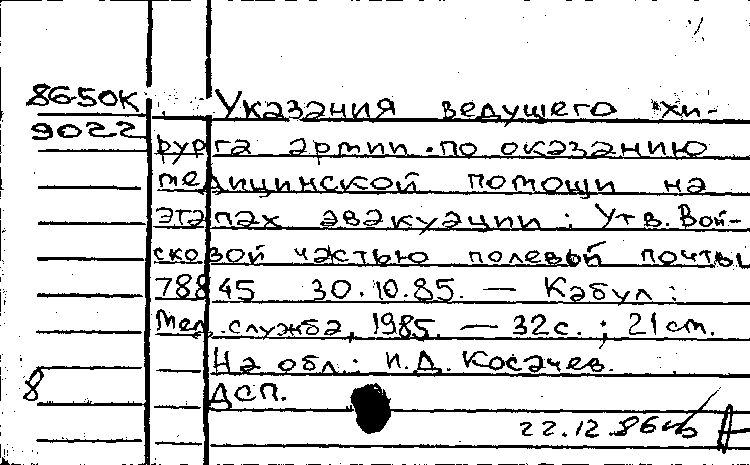 86-50К
9022
Указания ведущего хи-
рурга армии по оказанию
медицинской помощи на
этапах эвакуации : Утв. Вой-
сковой частью полевой почты
78845 30.10.85. — Кабул :
Мед. служба, 1985. — 32 с. ; 21 см.
На обл.: И.Д. Косачев.
ДСП.
8
22.12.86